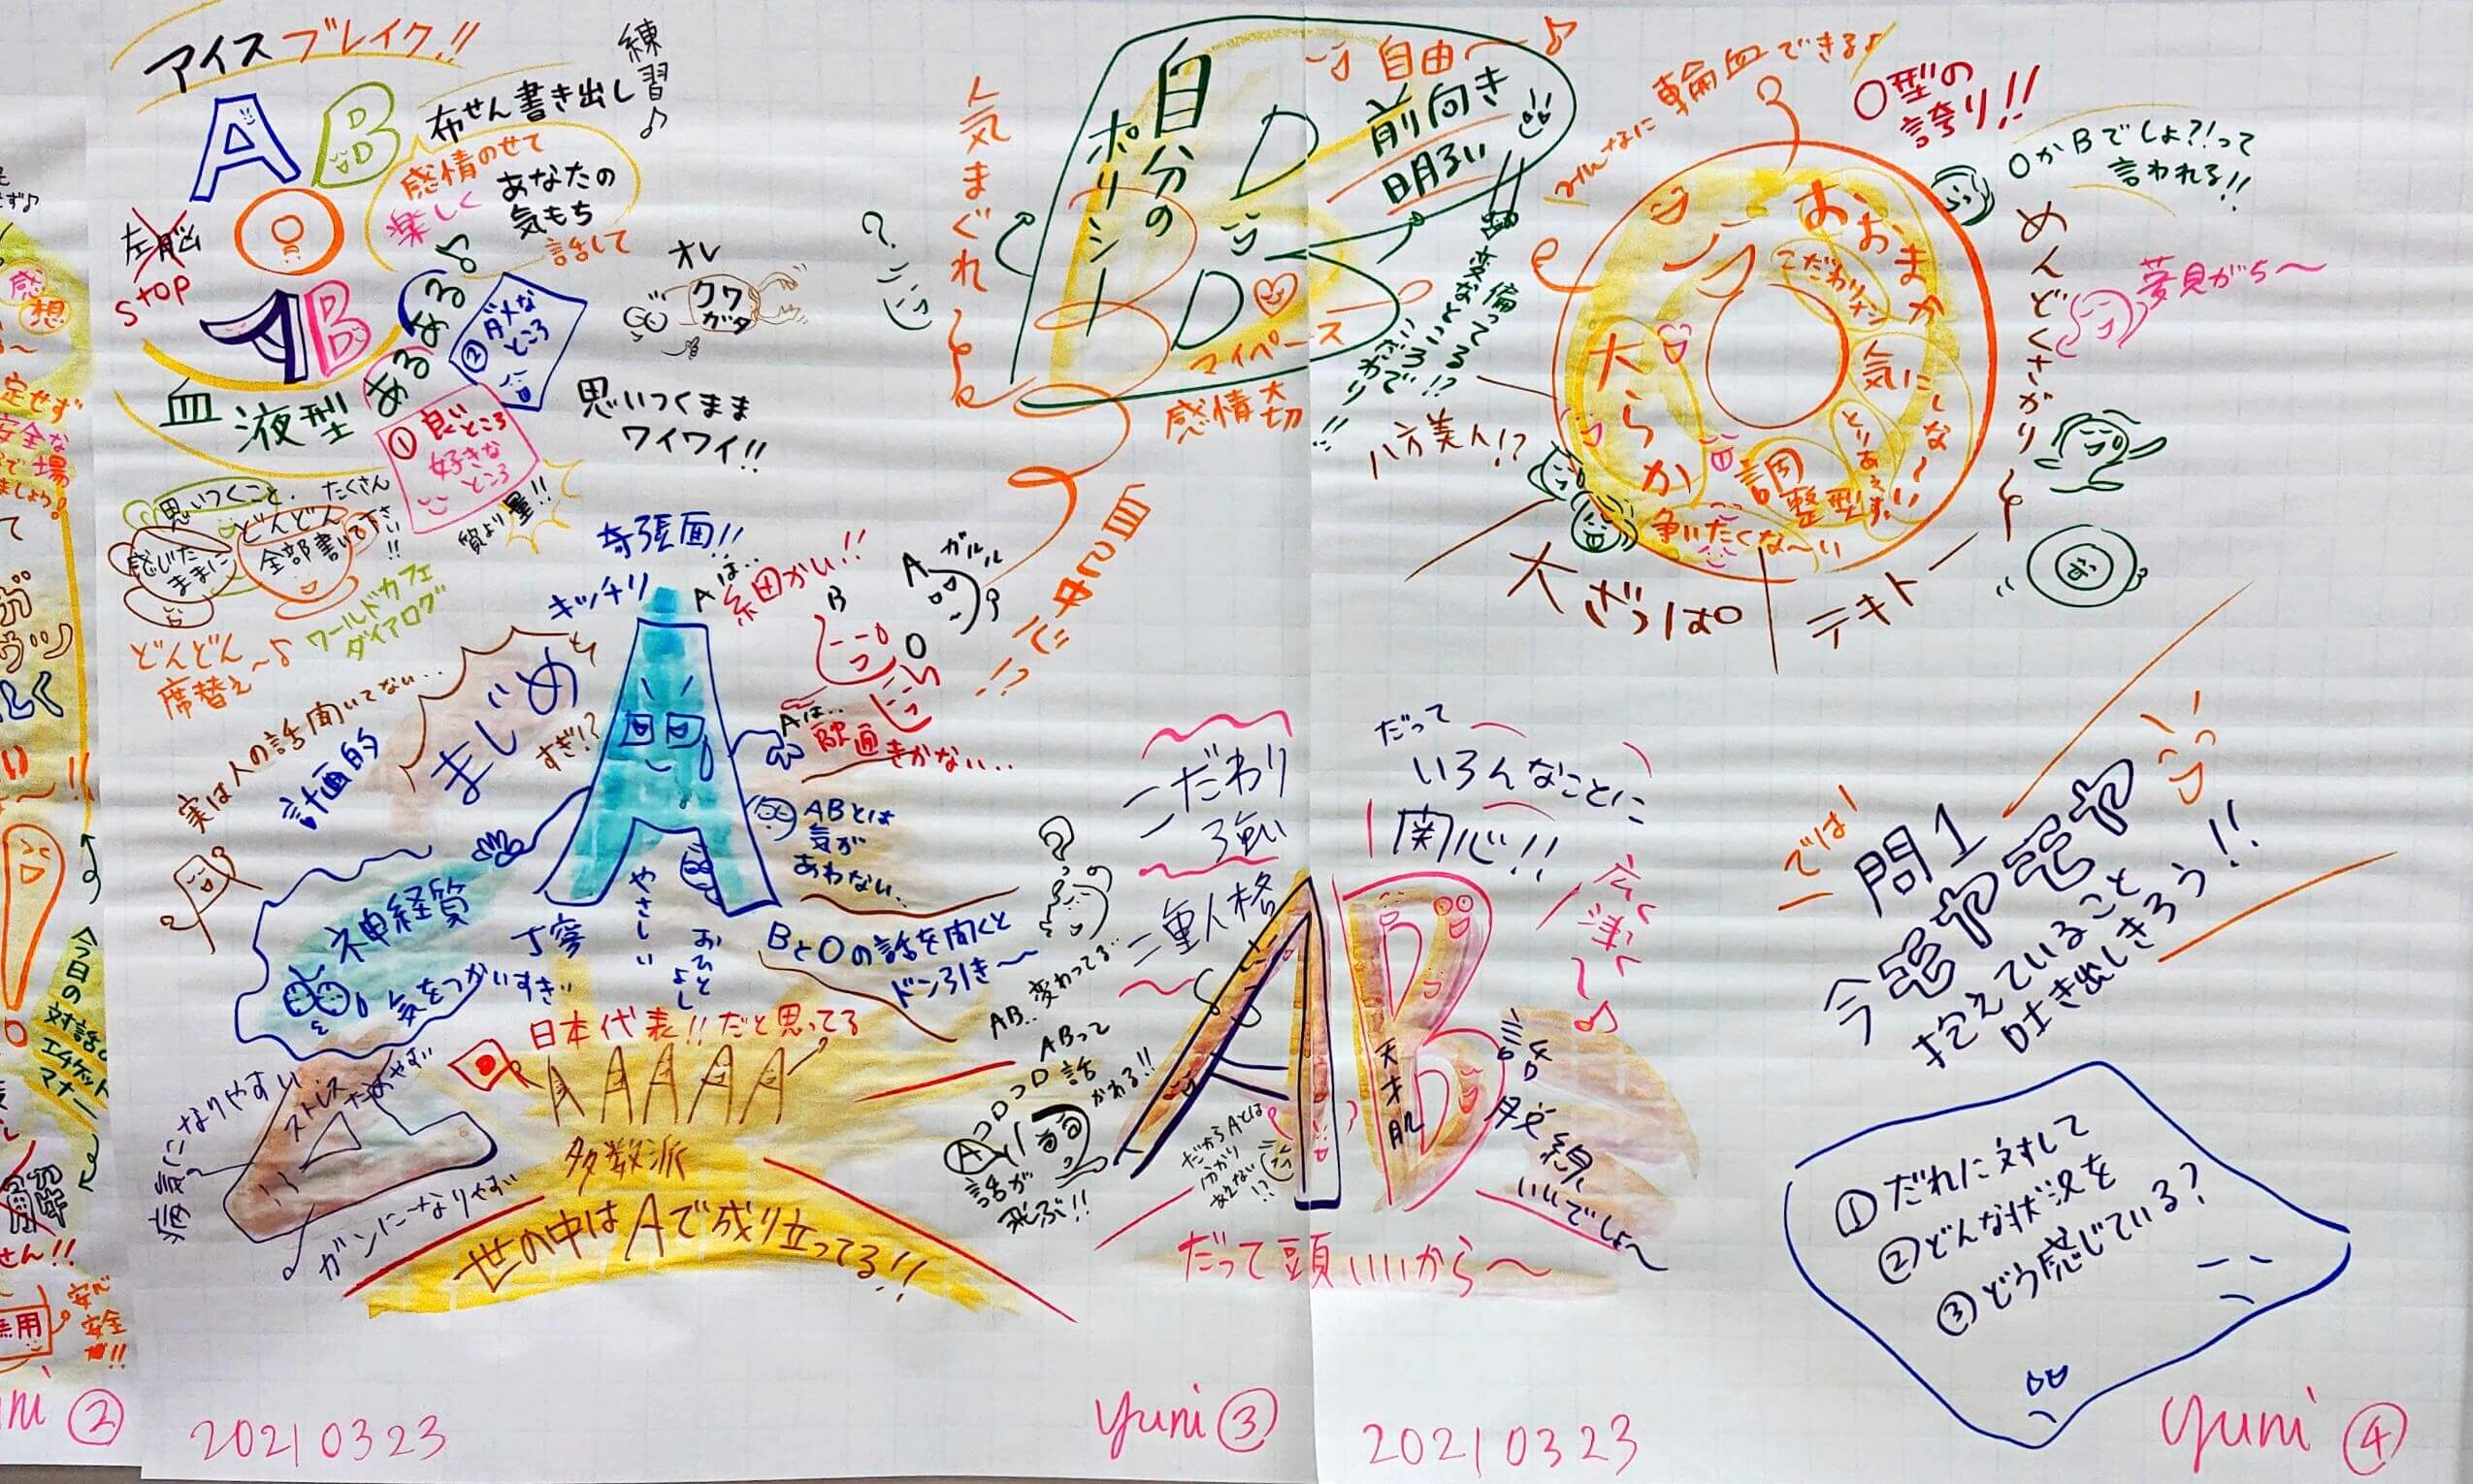 アイスブレイク!!
練習♪
A B
O
AB
布せん書き出し
感情のせて
楽しく
あなたの
気もち
話して
左脳
STOP
血液型
あるある♪
②ダメな
ところ
①良いところ
好きな
ところ
オレ
クワ
ガタ
思いつくまま
ワイワイ!!
思いつくこと、たくさん
どんどん
感じた
ままに
全部書いて下さい!!
質より量!!
ワールドカフェ
ダイアログ
どんどん
席替え〜♪
奇張面!!
キッチリ
Aは..
細かい!!
B
A
ガルル
O
まじめ
すぎ!?
Aは..
融通きかない...
実は人の話聞いてない...
計画的
ABとは
気が
あわない..
神経質
気をつかいすぎ
丁寧
やさしい
おひとよし
BとOの話を聞くと
ドン引き〜
日本代表!!だと思ってる
A A A A A
多数派
世の中はAで成り立ってる!!
病気になりやすい
ストレス
ためやすい
ガンになりやすい
人気まぐれ
自分の
ポリシー
B
自由〜♪
前向き
明るい
マイペース
感情大切
自己中だっ!!
変なところで
こだわり!!
偏ってる!?
?
みんなに輸血できる♪
O型の
誇り!!
OかBでしょ?!って
言われる!!
おおまか
こだわりナシ
気にしな〜い
とりあえず
大らか
調整型
争いたくな〜い
めんどくさがり
夢見がち〜
八方美人!?
大ざっぱ
テキトー
お
こだわり
強い
二重人格
だって
いろんなことに
関心!!
広く
浅く
〜♪
AB
天才肌
AB..変わってる..
ABって
コロコロ話
かわる!!
A
話が
飛ぶ!!
だからAとは
分かり
あえない
!?
話脱線
いいでしょ〜
だって頭いいから〜
では!
問1
今モヤモヤ
抱えていること
吐き出しきろう!!
①だれに対して
②どんな状況を
③どう感じている?
感想
定せず
安全な
場
今日の
対話の
エチケット
マナー
せん!!
無用
安心
安全
!!
②
20210323
yuni ③
20210323
yuni ④